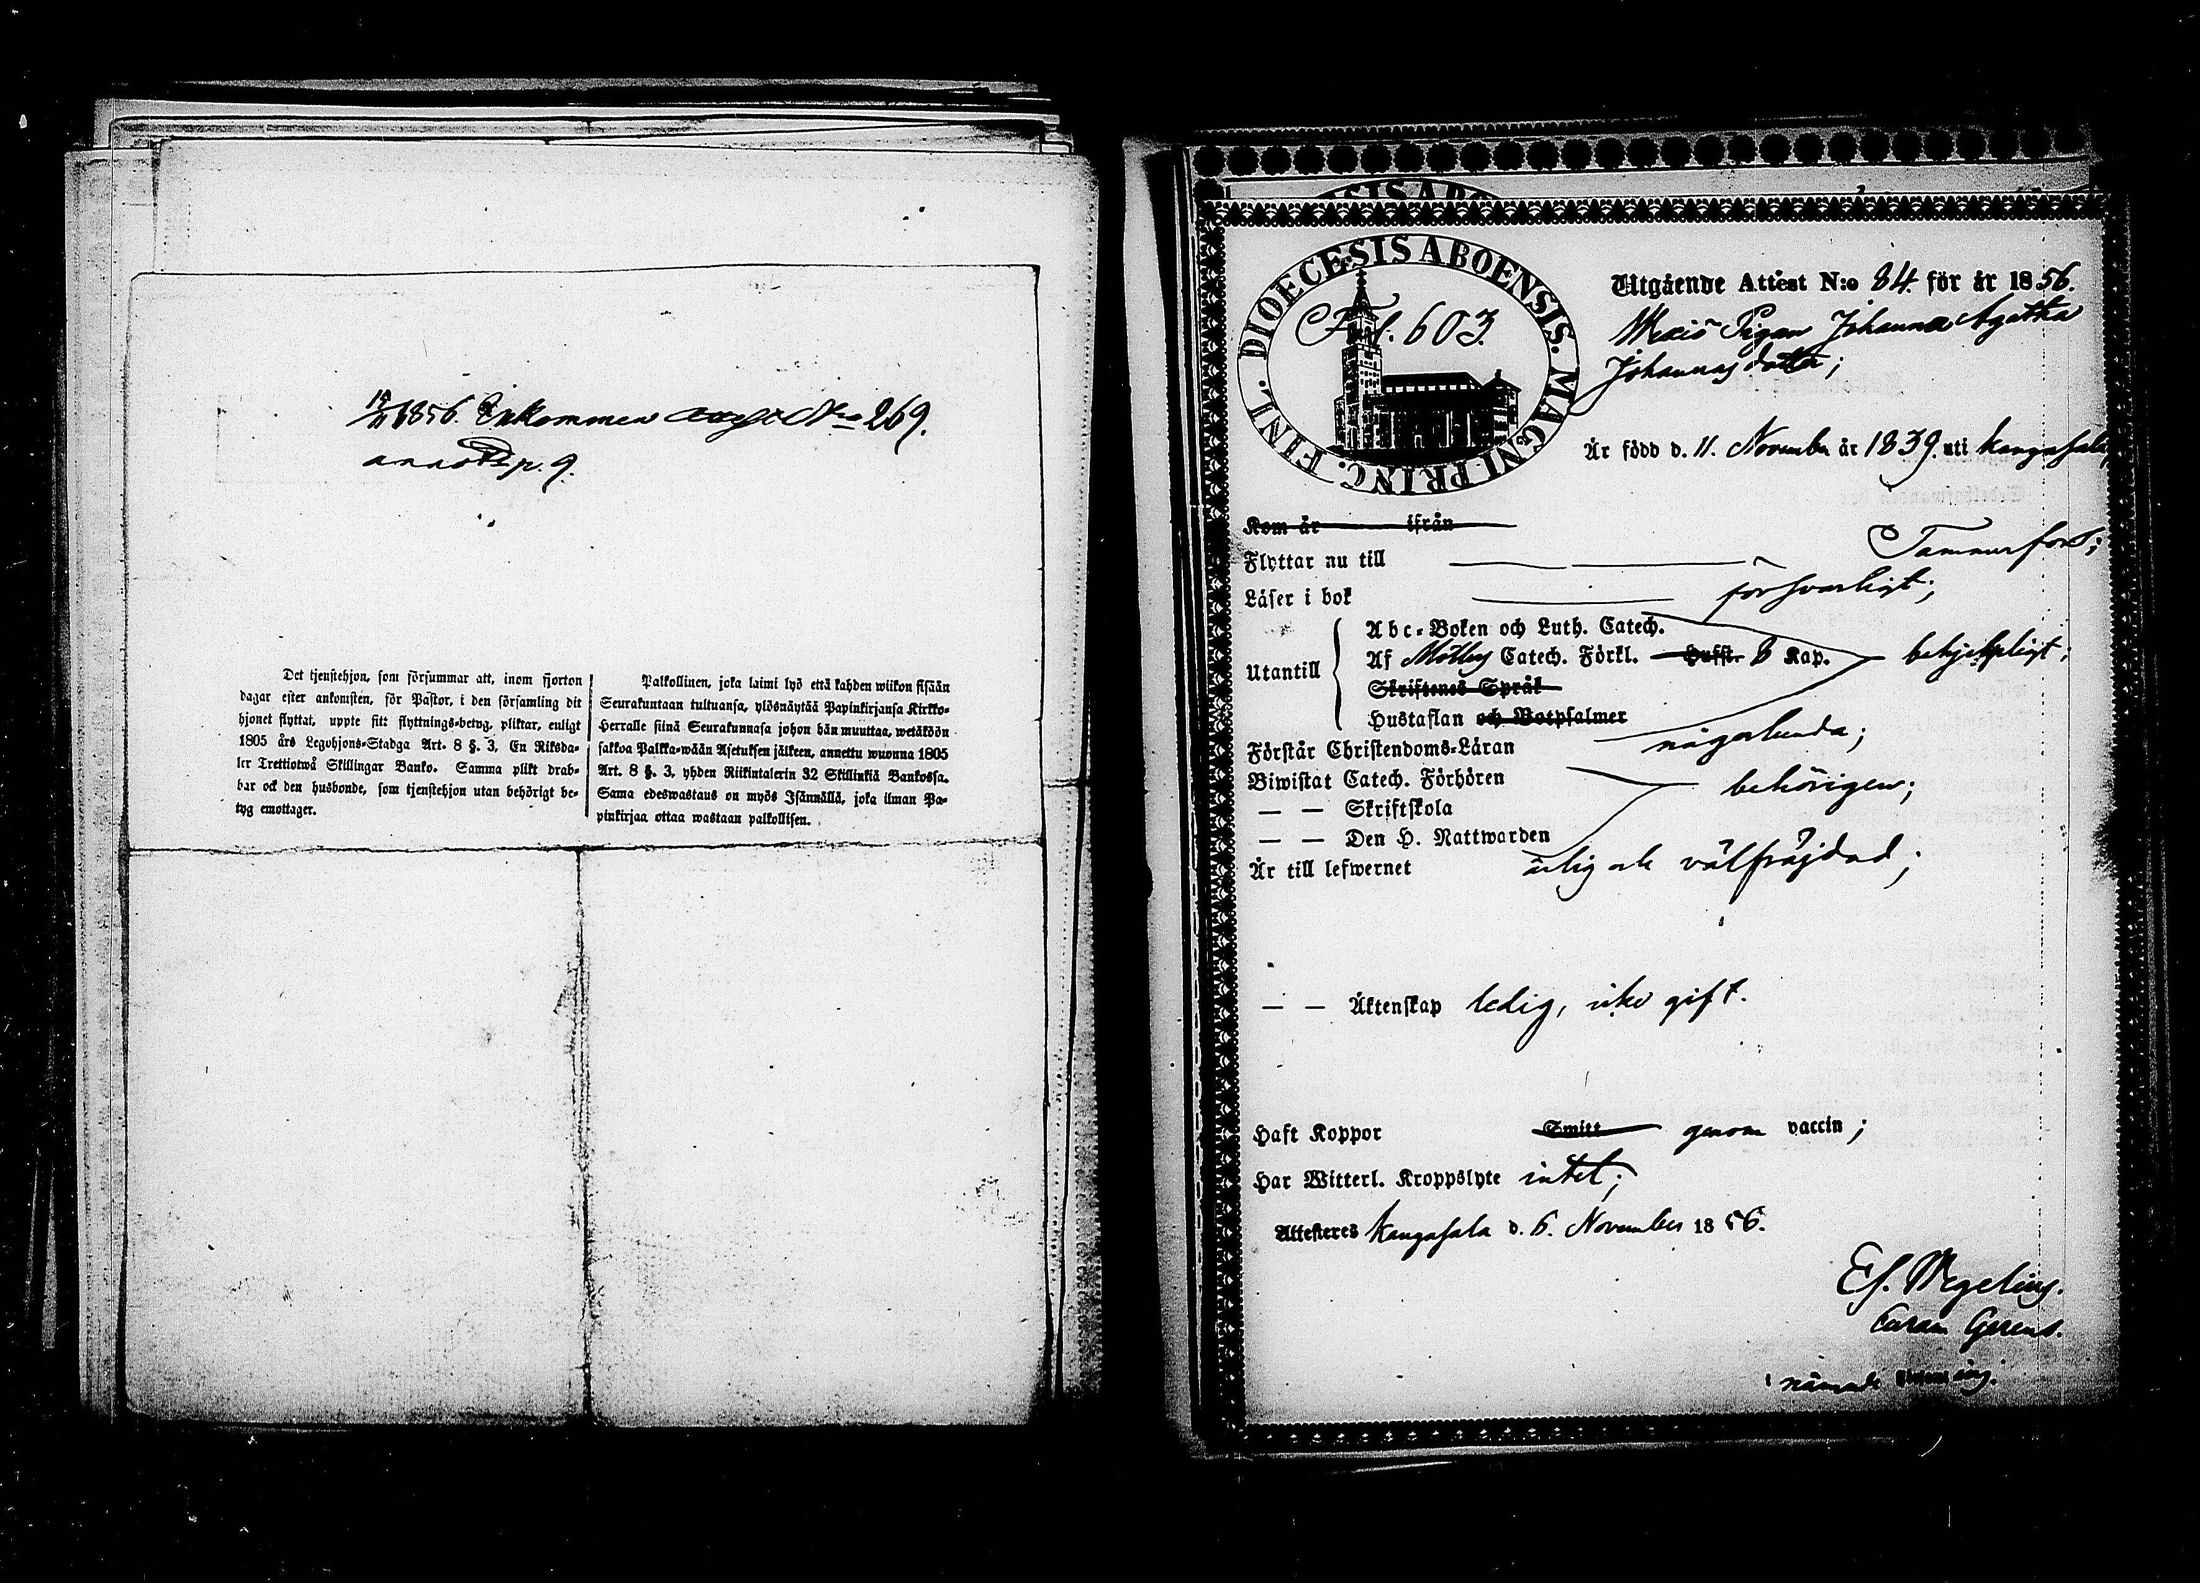 19/11 1856. Inkommen N:o 269.
p. 9.
Det tjenstehjon, som försummar att, inom fjorton
dagar efter ankomsten, för Pastor, i den församling dit
hjonet flyttat, uppte sitt flyttnings-betyg, pliktar, enligt
1805 års Legohjons-Stadga Art. 8 §. 3, En Riksda-
ler Trettiotwå Skillingar Banko. Samma plikt drab-
bar ock den husbonde, som tjenstehjon utan behörigt be-
tyg emottager.
Palkollinen, joka laimi lyö että kahden wiikon sisään
Seurakuntaan tultuansa, ylösnäytää Papinkirjansa Kirkko-
Herralle siinä Seurakunnasa johon hän muuttaa, wetäköön
sakkoa Palkka-wään Asetuksen jälkeen, annettu wuonna 1805
Art. 8 §. 3, yhden Riikintalerin 32 Skillinkiä Bankossa.
Sama edeswastaus on myös Isännällä, joka ilman Pa-
pinkirjaa ottaa wastaan palkollisen.
DIOECESIS ABOENSIS. MAGNI. PRINC. FINL.
Fol. 603.
Utgående Attest N:o 84 för år 1856.
Pigan Johanna Agatha
Johannasdotter;
Är född d. 11. November år 1839. uti Kangasala,
Kom år ifrån
Flyttar nu till Tammerfors;
Läser i bok försvarligt;
Abc-Boken och Luth. Catech.
Utantill Af Möllers Catech. Förkl. Hufst. 8 Kap. behjelpligt;
Skriftenes Språk
Hustaflan och Botpsalmer
Förstår Christendoms-Läran någorlunda;
Biwistat Catech. Förhören behörigen;
— — Skriftskola
— — Den H. Nattwarden
Är till lefwernet ärlig och välfräjdad;
— — Äktenskap ledig, icke gift.
Haft Koppor Smitt genom vaccin;
Har Witterl. Kroppslyte intet;
Attesteres Kangasala d. 6. November 1856.
Es. Wegelius.
Curam Gerens.
i nämnde